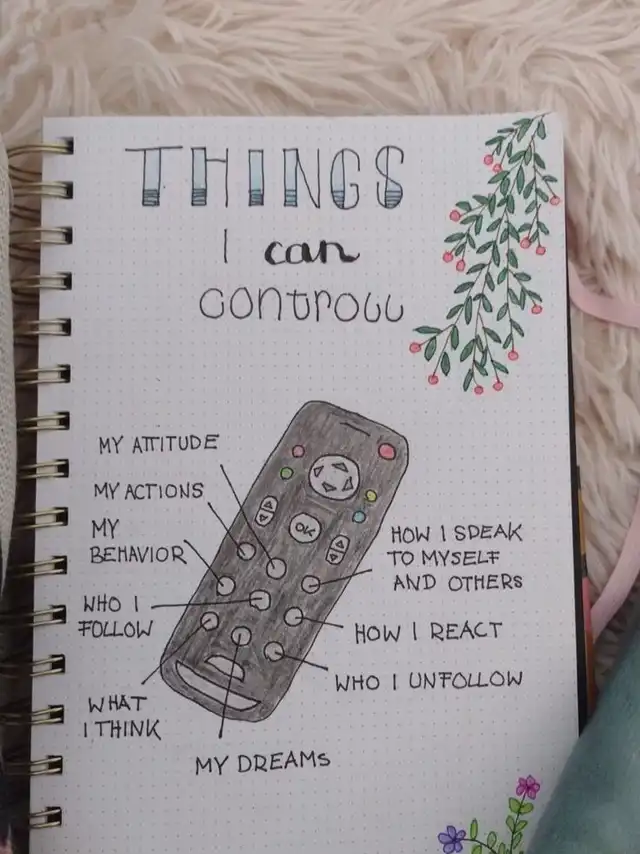 THINGS
I can
controll
MY ATTITUDE
MY ACTIONS
MY
BEHAVIOR
WHO I
FOLLOW
WHAT
I THINK
MY DREAMS
OK
HOW I SPEAK
TO MYSELF
AND OTHERS
HOW I REACT
WHO I UNFOLLOW